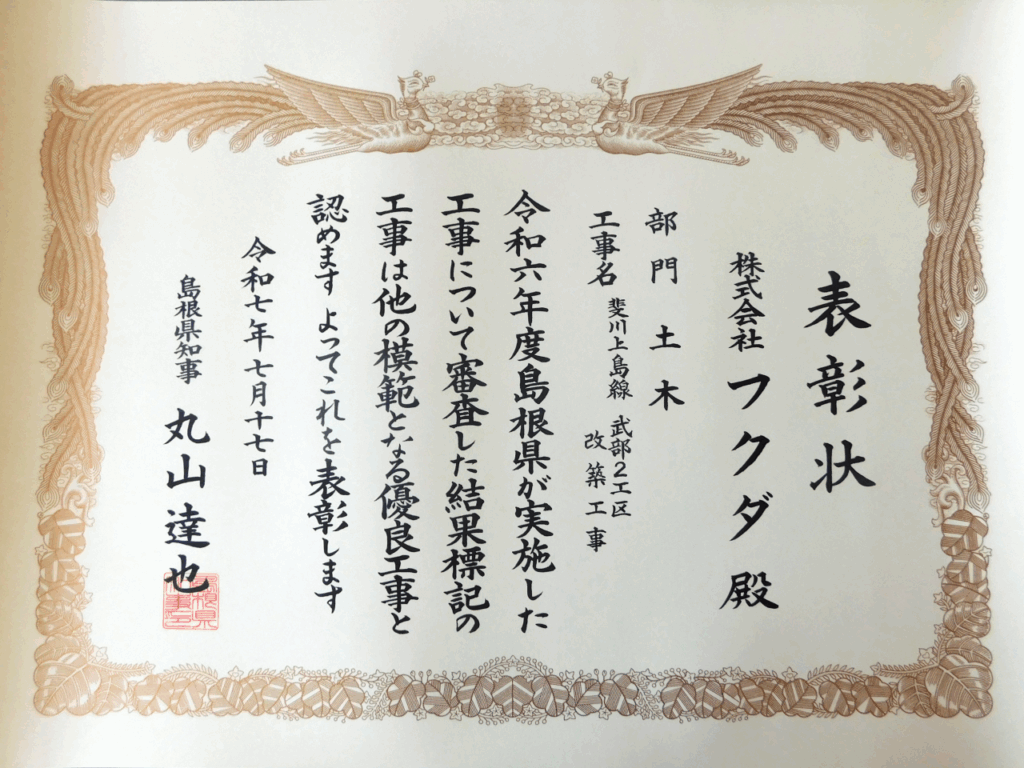 表彰状
株式会社 フクダ 殿
部門 土木
工事名 斐川上島線 武部2工区
改築工事
令和六年度島根県が実施した
工事について審査した結果標記の
工事は他の模範となる優良工事と
認めます よってこれを表彰します
令和七年七月十七日
島根県知事 丸山達也